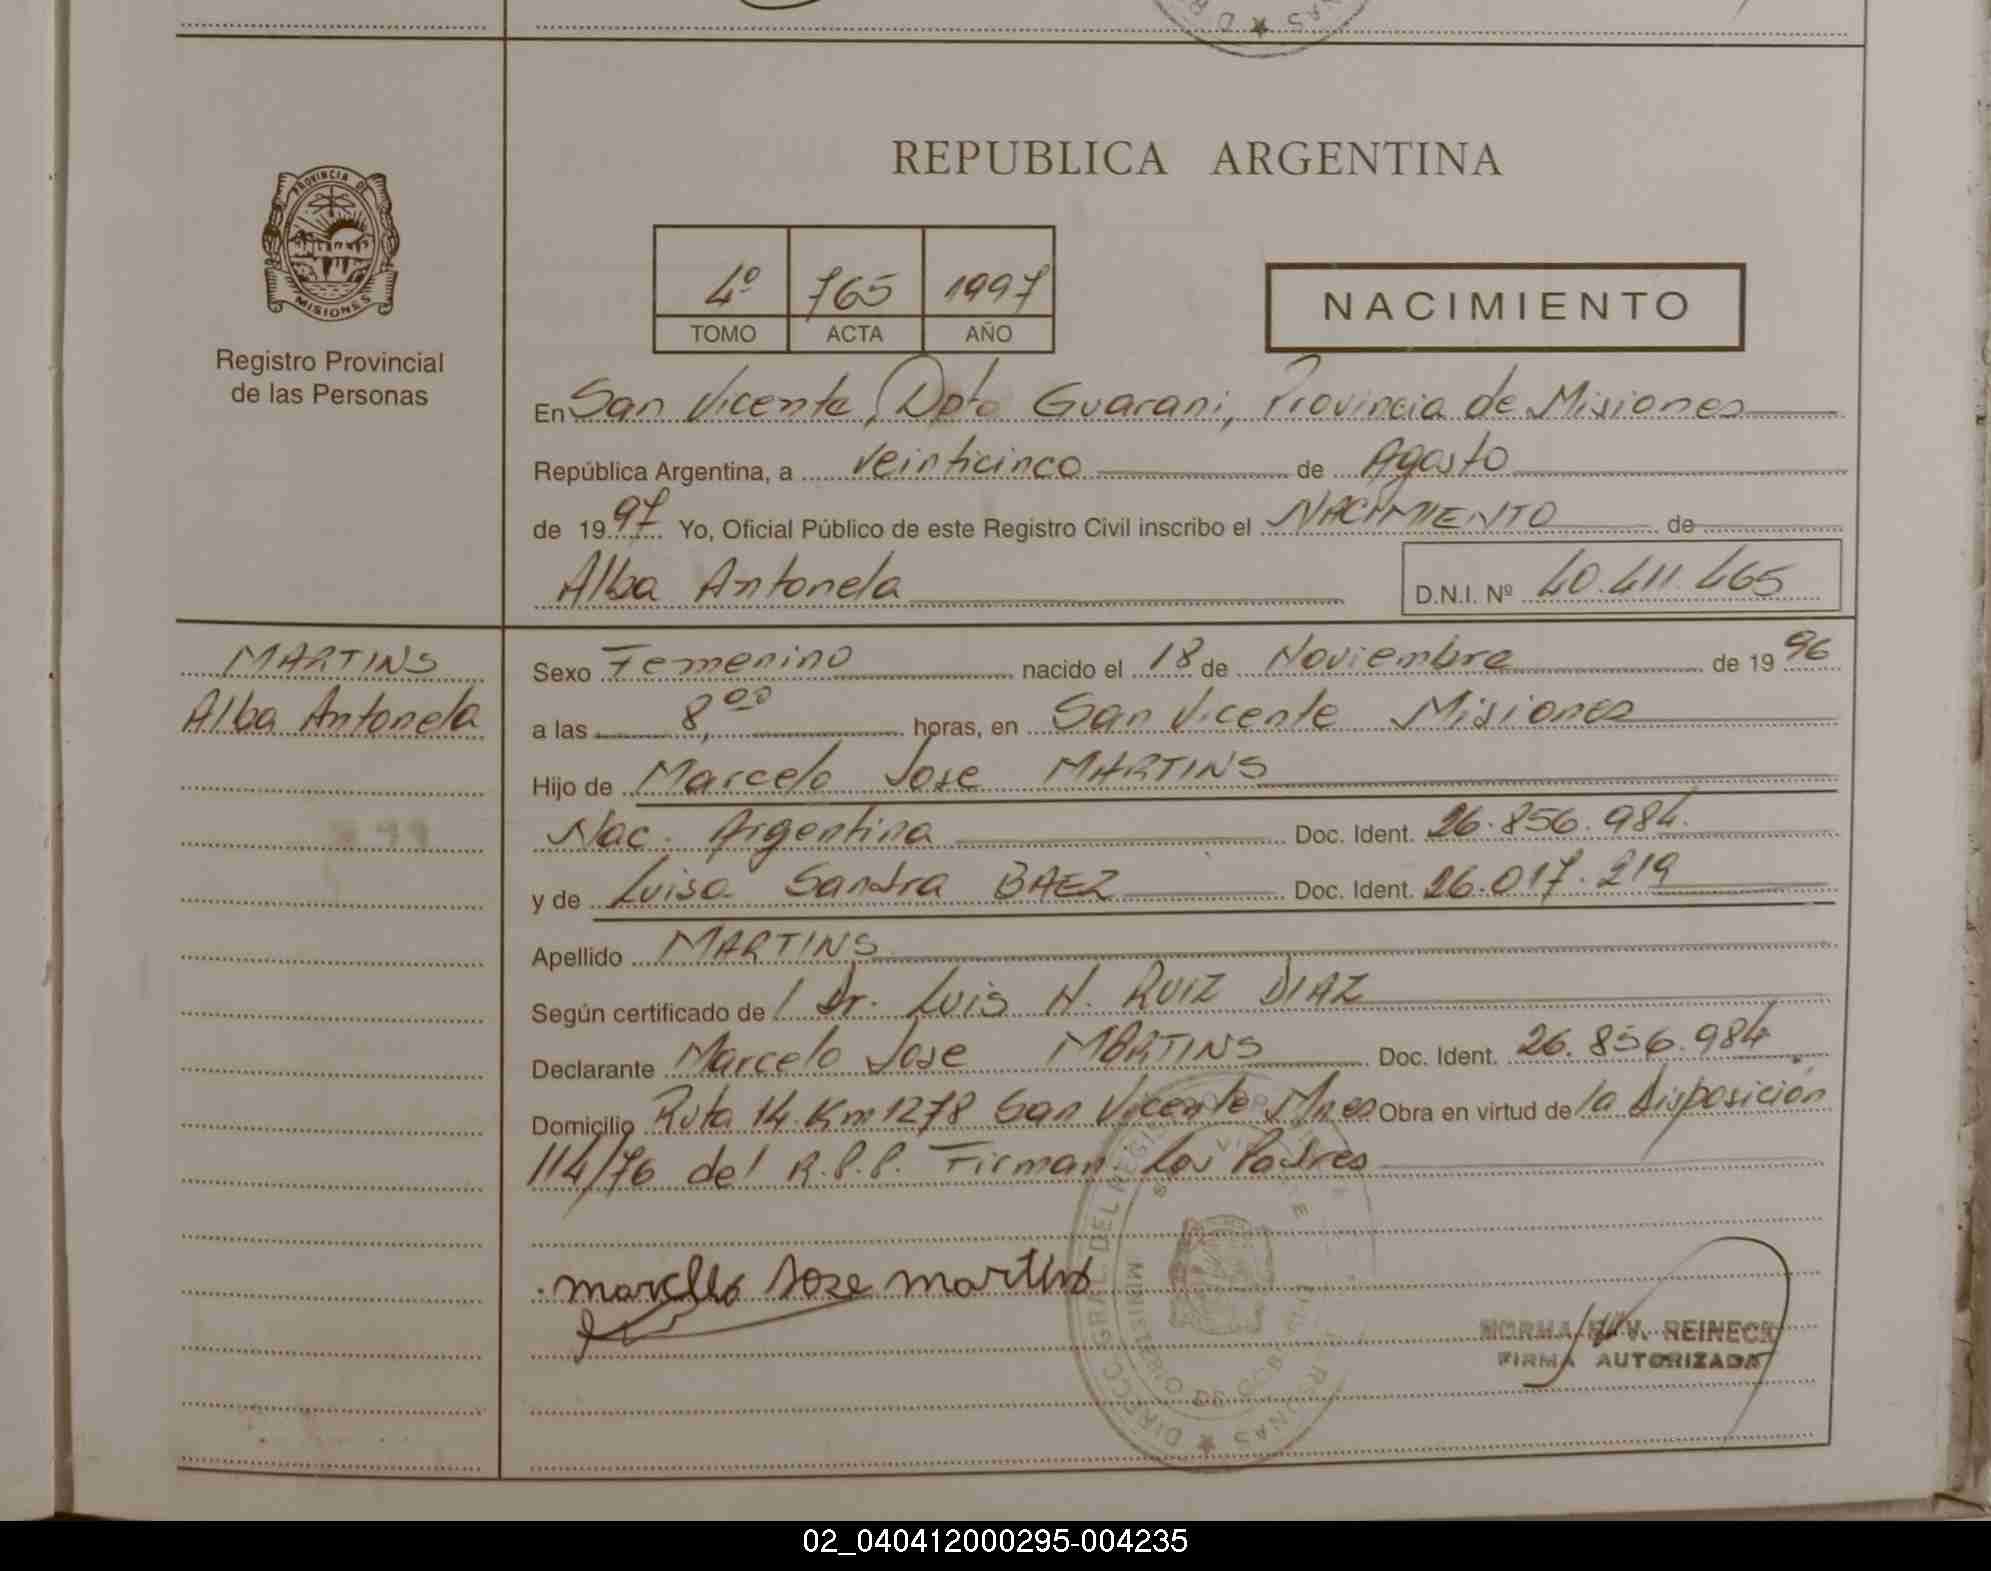 REPUBLICA ARGENTINA
PROVINCIA DE
MISIONES
Registro Provincial
de las Personas
4º 765 1997
TOMO ACTA AÑO
NACIMIENTO
En San Vicente, Dpto Guarani, Provincia de Misiones
República Argentina, a veinticinco de Agosto
de 1997 Yo, Oficial Público de este Registro Civil inscribo el NACIMIENTO de
Alba Antonela D.N.I. Nº 40.411.465
MARTINS
Alba Antonela
Sexo Femenino nacido el 18 de Noviembre de 1996
a las 8,00 horas, en San Vicente Misiones
Hijo de Marcelo Jose MARTINS
Nac. Argentina Doc. Ident. 26.856.984.
y de Luisa Sandra BAEZ Doc. Ident. 26.017.219
Apellido MARTINS
Según certificado de / Dr. Luis H. RUIZ DIAZ
Declarante Marcelo Jose MARTINS Doc. Ident. 26.856.984.
Domicilio Ruta 14 Km 1278 San Vicente Mnes Obra en virtud de la disposición
114/76 del R.P.P. Firman: Los Padres
marcelo Jose martins
REINECK
FIRMA AUTORIZADA
02_040412000295-004235